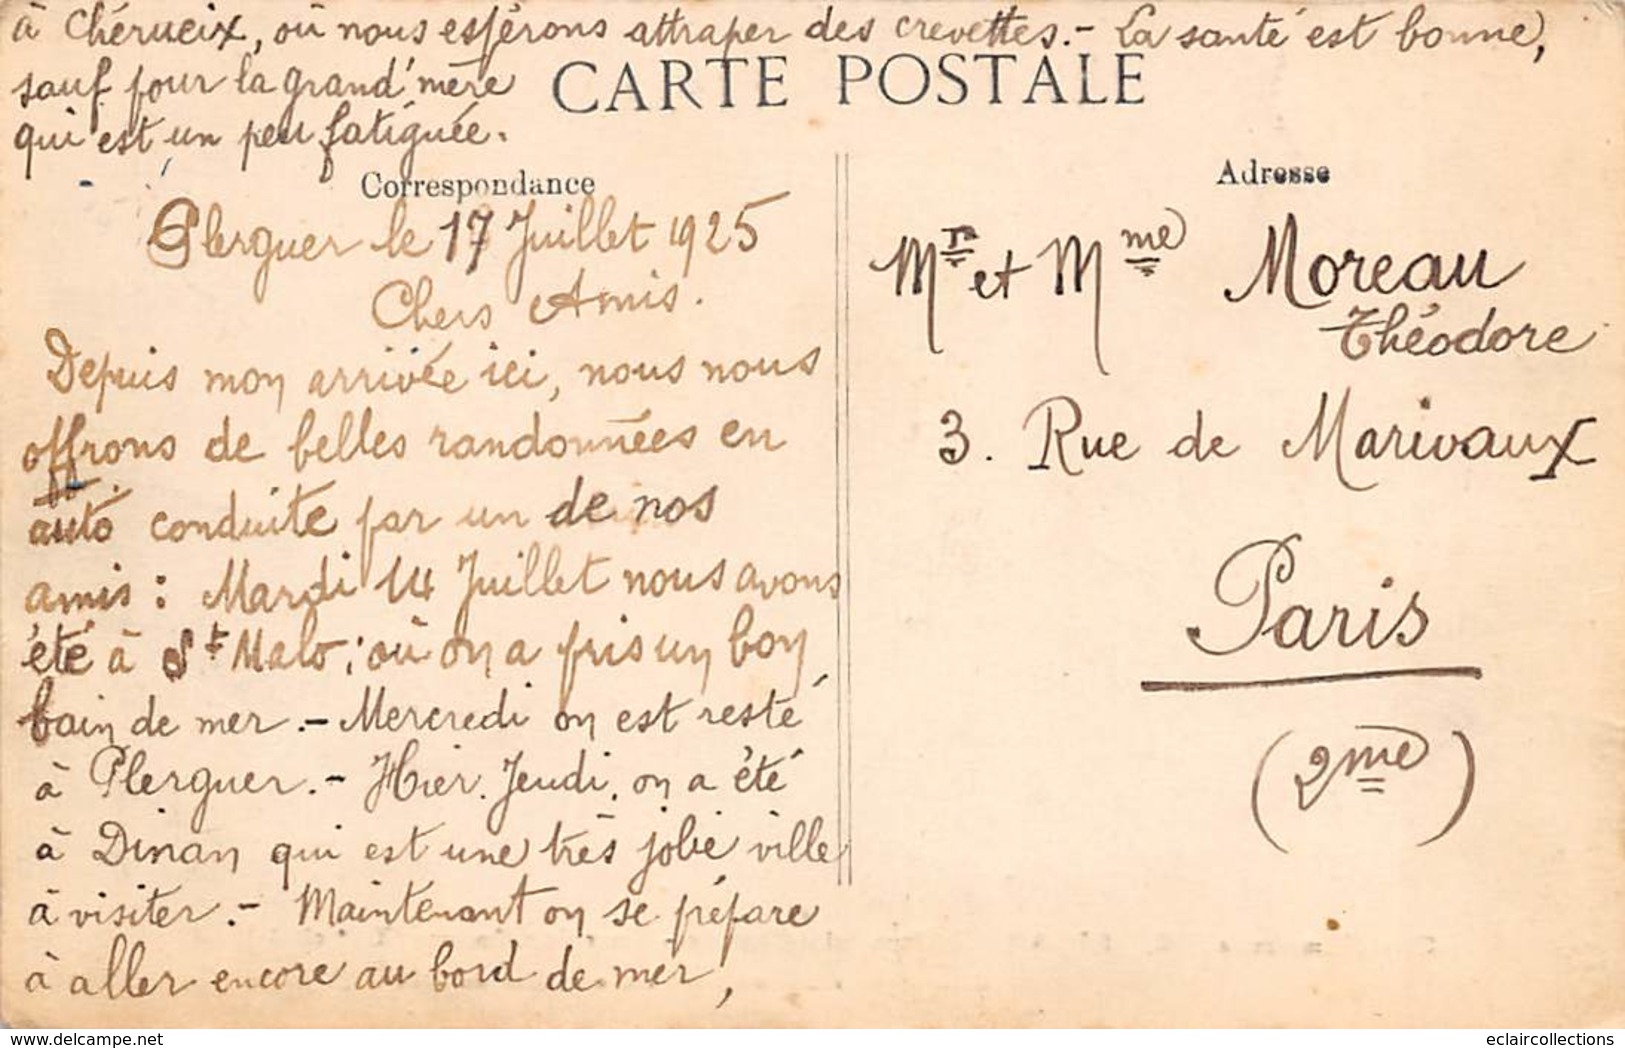 à Chérueix, où nous espérons attraper des crevettes.- La santé est bonne,
sauf pour la grand'mère
qui est un peu fatiguée.
CARTE POSTALE
Correspondance
Plerguer le 17 Juillet 1925
Chers Amis.
Depuis mon arrivée ici, nous nous
offrons de belles randonnées en
auto conduite par un de nos
amis: Mardi 14 Juillet nous avons
été à St Malo; où on a pris un bon
bain de mer.- Mercredi on est resté
à Plerguer.- Hier. Jeudi, on a été
à Dinan qui est une très jolie ville
à visiter.- Maintenant on se prépare
à aller encore au bord de mer,
Adresse
Mr et Mme Moreau
Théodore
3. Rue de Marivaux
Paris
(2me)
eclaircollections